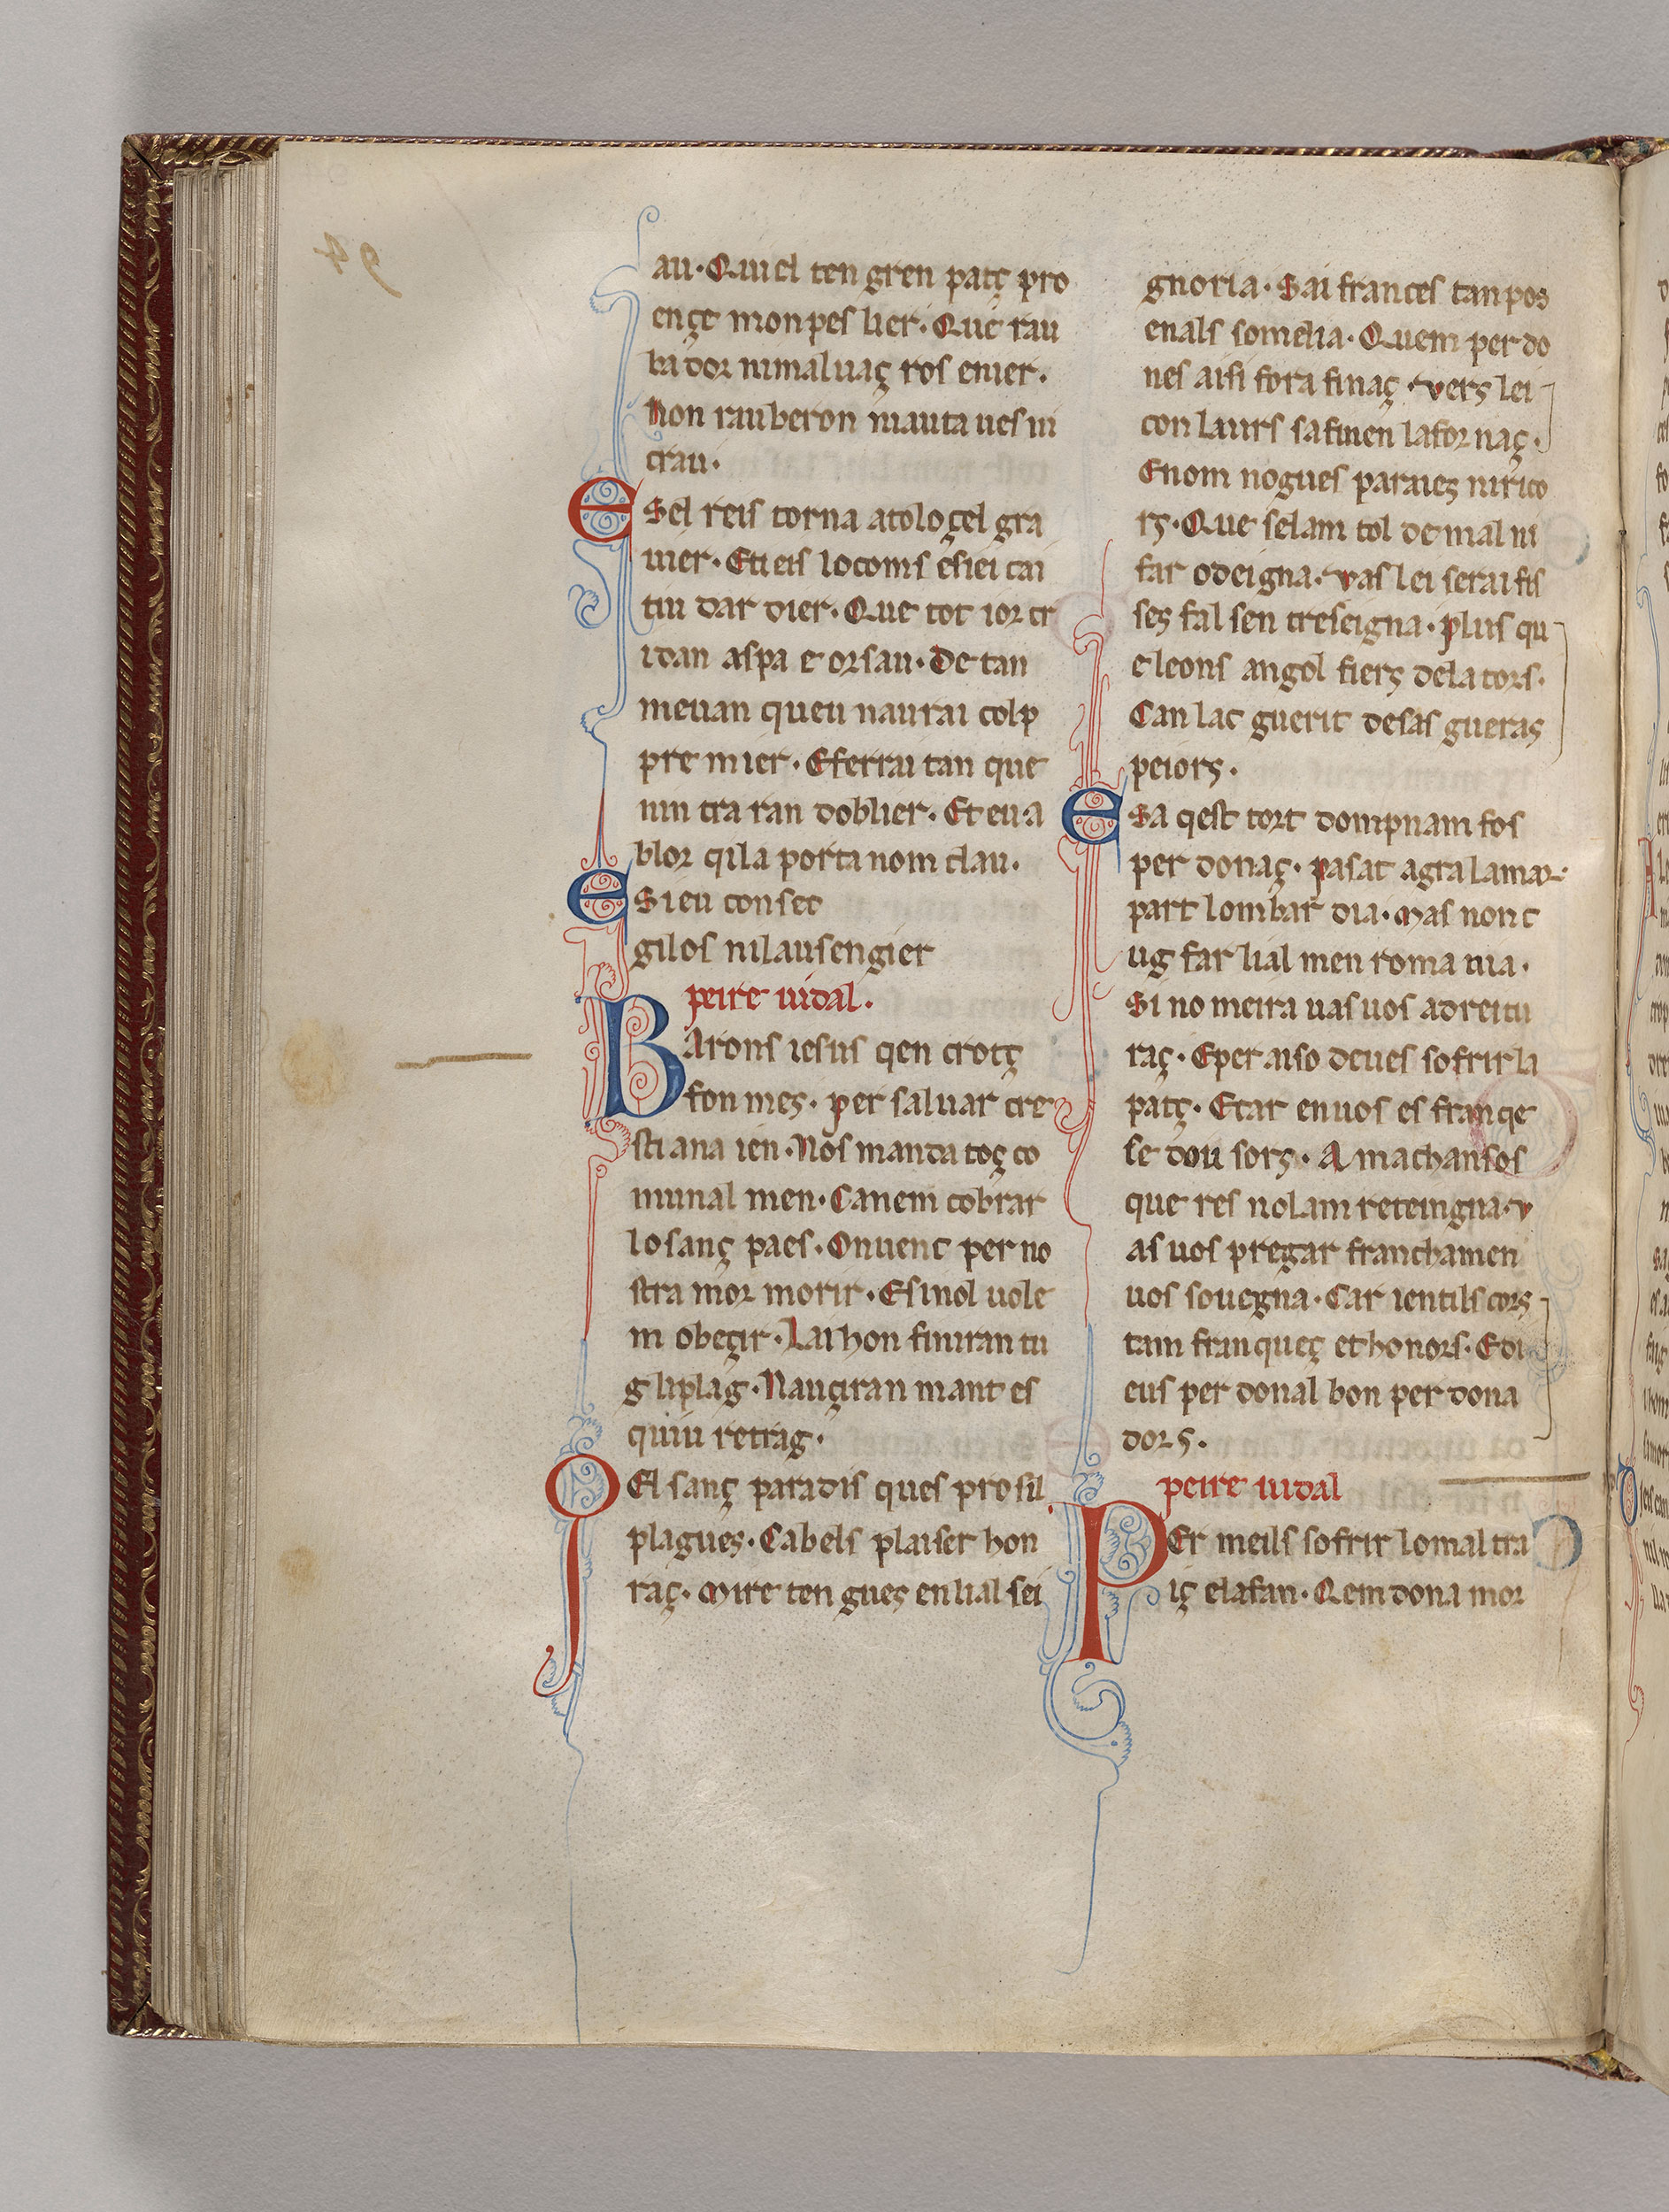 au. Quiel ten gren patç pro
ençe monpeslier. Que rau
bador nimaluaç ros enier.
Non rauberon mauta uesin
crau.
E Sel reis torna atoloçel gra
uier. Eti eis locoms esiei cai
tiu dar dier. Que tot ior cr
idan aspa e orsau. De tan
meuan queu naurai colp
premier. Eferrai tan que
nin tra ran doblier. Et eu a
blor qila porta nom clau.
E Sieu consec
gilos nilausengier
peire uidal.
BArons iesus qen crotç
fon mes. per saluar cre
stiana ien. Nos manda toç co
munal men. Canem cobrar
lo sanç paes. On uenc per no
stra mor morir. Esinol uole
m obeçir. Lai hon finiran tu
g liplag. Nauçiran mant es
quiu retrag.
Q El sanç paradis ques prosil
plagues. Cabels plaiser hon
raç. Mire ten gues en lial sei
gnoria. Sai frances tan pos
enals somelia. Quem perdo
nes aisi fora finaç. vers lei
con laurs safinen lafornaç.
Enom nogues paraies nirico
rs. Que selam tol de mal ni
far odeigna. vas lei serai fis
ses fal sen treseigna. plus qu
e leons angol fiers dela tors.
Can lac guerit desas gueras
peiors.
E Sa qest tort dompnam fos
per donaç. pasat agra lamar.
part lombar dia. Mas non c
ug far lial men romania.
Si no meira uas uos adreitu
raç. Eper aiso deues sofrir la
patç. Etar en uos es franqe
se dou sors. A machansos
que res nolam reteingna. v
as uos pregar franchamen
uos souegna. Car ientils cors
tam franqueç et honors. Edi
eus per donal bon per dona
dors.
peire uidal
PEr meils sofrir lo mal tra
iç elafan. Qem dona mor
94